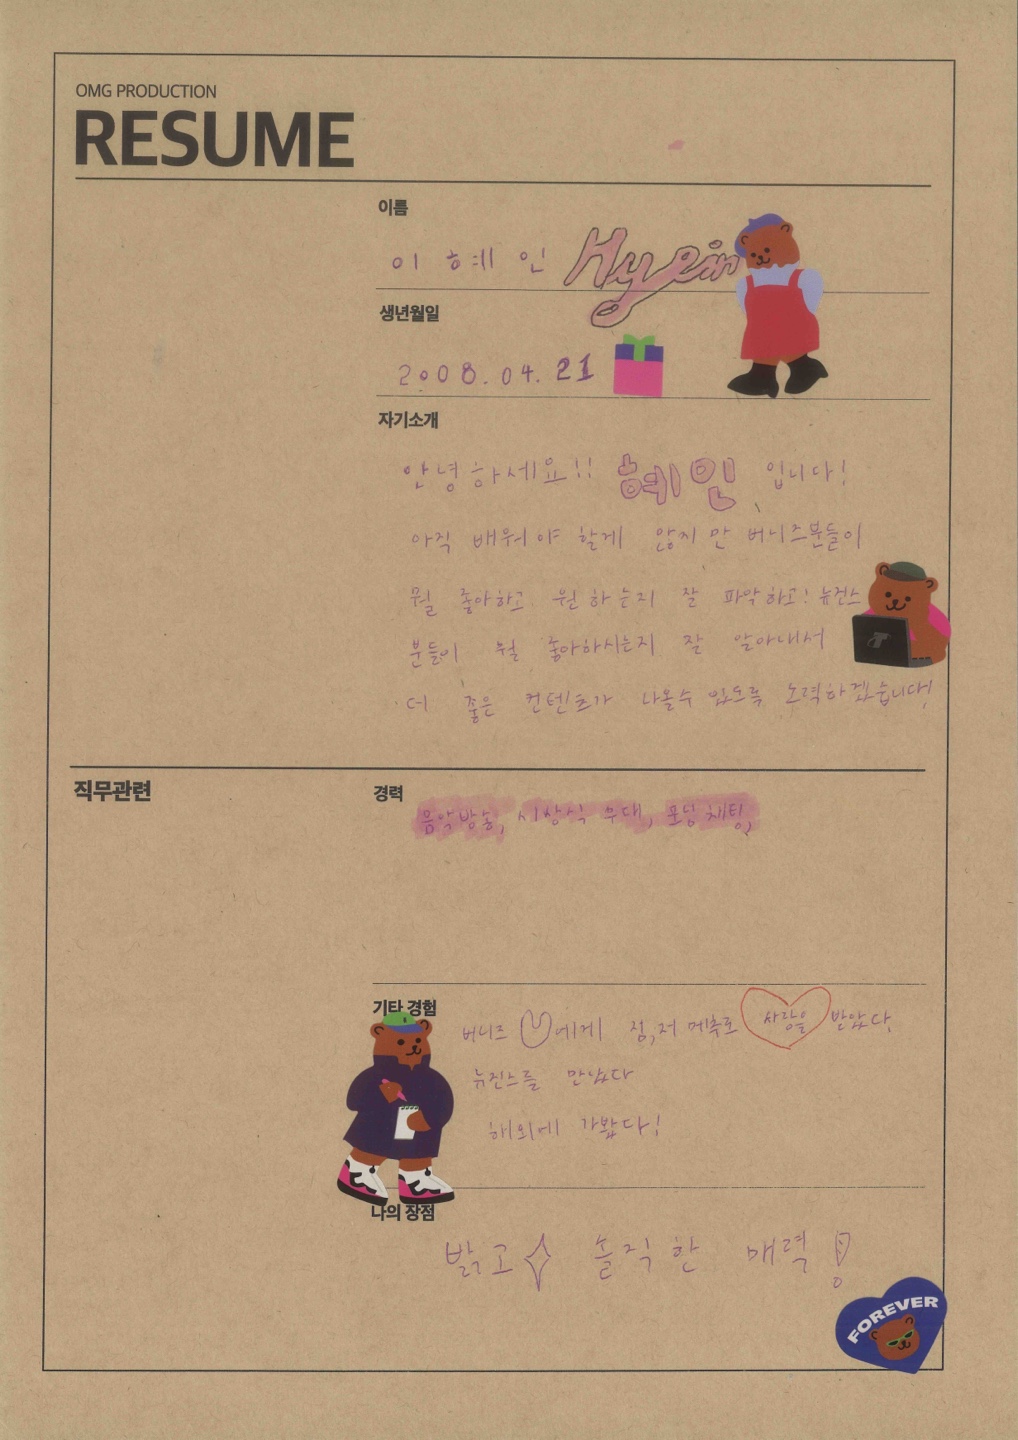 OMG PRODUCTION
RESUME
이름
이 혜 인 Hyein
생년월일
2008. 04. 21
자기소개
안녕하세요!! 혜인 입니다!
아직 배워야 할게 많지만 버니즈분들이
뭘 좋아하고 원하는지 잘 파악하고! 뉴진스
분들이 뭘 좋아하시는지 잘 알아내서
더 좋은 컨텐츠가 나올수 있도록 노력하겠습니다!
직무관련
경력
음악방송, 시상식 무대, 포닝 채팅,
기타 경험
버니즈 에게 점,저 메추로 사랑을 받았다
뉴진스를 만났다
해외에 가봤다!
나의 장점
밝고 솔직한 매력!
FOREVER